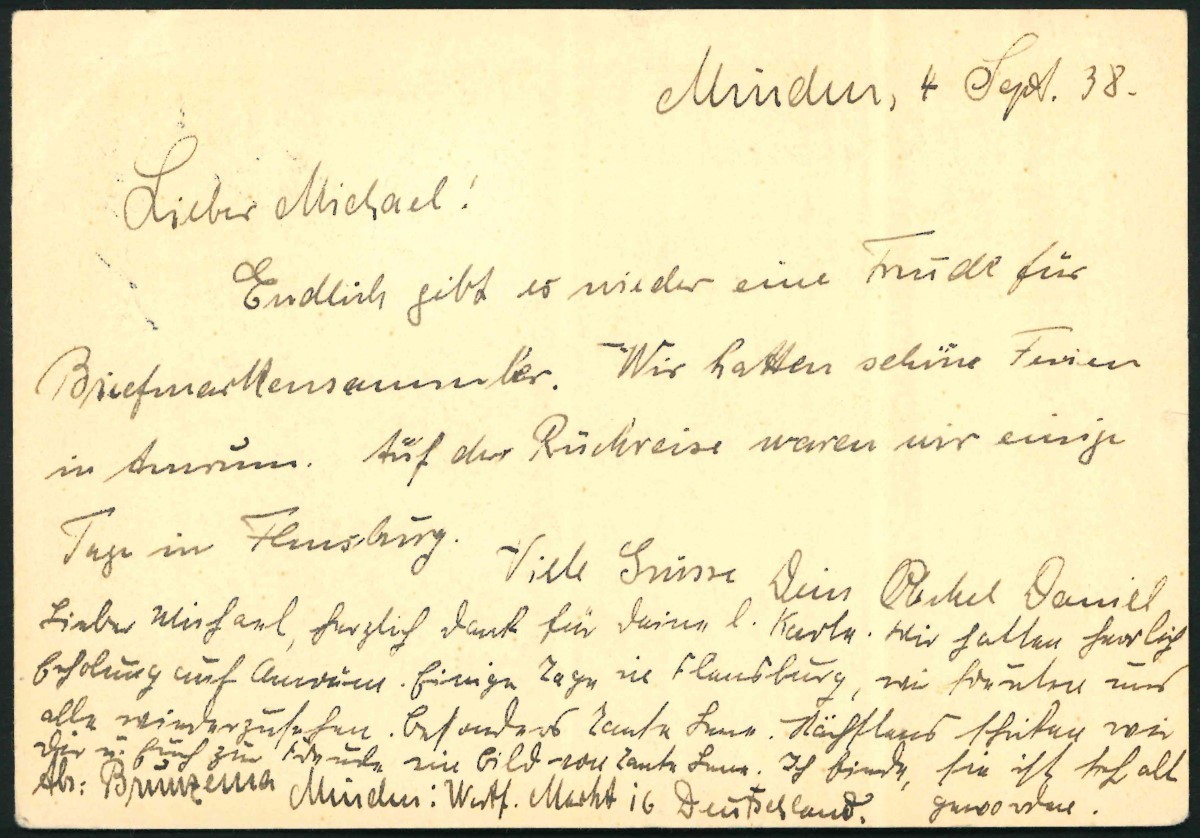 Minden, 4 Sept. 38.
Lieber Michael!
Endlich gibt es wieder eine Freude für
Briefmarkensammler. Wir hatten schöne Ferien
in Amrum. Auf der Rückreise waren wir einige
Tage in Flensburg.
Viele Grüsse Dein Onkel Daniel
Lieber Michael, herzlich Dank für Deine l. Karte. Wir hatten herrlich
Erholung auf Amrum. Einige Tage in Flensburg, wir freuten uns
alle wiederzusehen. besonders Tante Lene. Nächstens schicken wir
Dir u. Euch zur Freude ein Bild von Tante Lene. Ich finde, sie ist sehr alt
geworden.
Abs: Brunzema Minden: Westf. Markt 16 Deutschland.